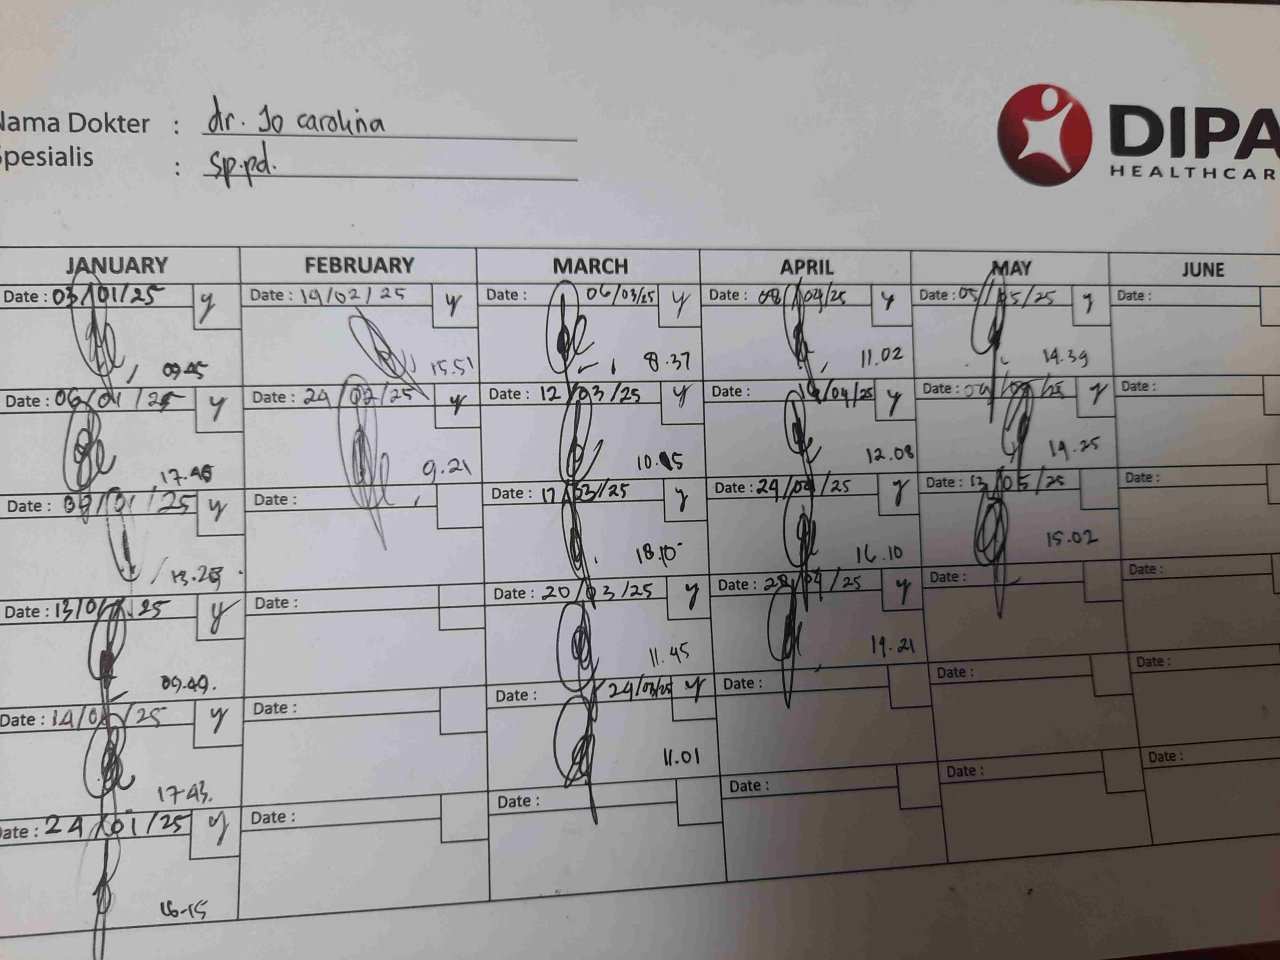 Nama Dokter : dr. Jo carolina
Spesialis : Sp.pd.
DIPA
HEALTHCAR
JANUARY FEBRUARY MARCH APRIL MAY JUNE
Date : 03/01/25 y Date : 19/02/25 y Date : 06/03/25 y Date : 08/04/25 y Date : 05/05/25 y Date :
09.45 15.51 8.37 11.02 14.39
Date : 06/01/25 y Date : 24/02/25 y Date : 12/03/25 y /04/25 y Date : /25 y Date :
17.45 9.21 10.15 12.08 14.25
Date : 08/01/25 y Date : Date : 17/03/25 y Date : 24/04/25 y Date : 13/05/25 Date :
13.25 18.10 16.10 15.02
Date : 13/01/25 y Date : Date : 20/03/25 y Date : 28/04/25 y Date : Date :
09.49. 11.45 19.21
Date : 14/01/25 y Date : Date : 24/03/25 y Date : Date : Date :
17.43. 11.01
Date : 24/01/25 y Date : Date : Date : Date : Date :
16.15